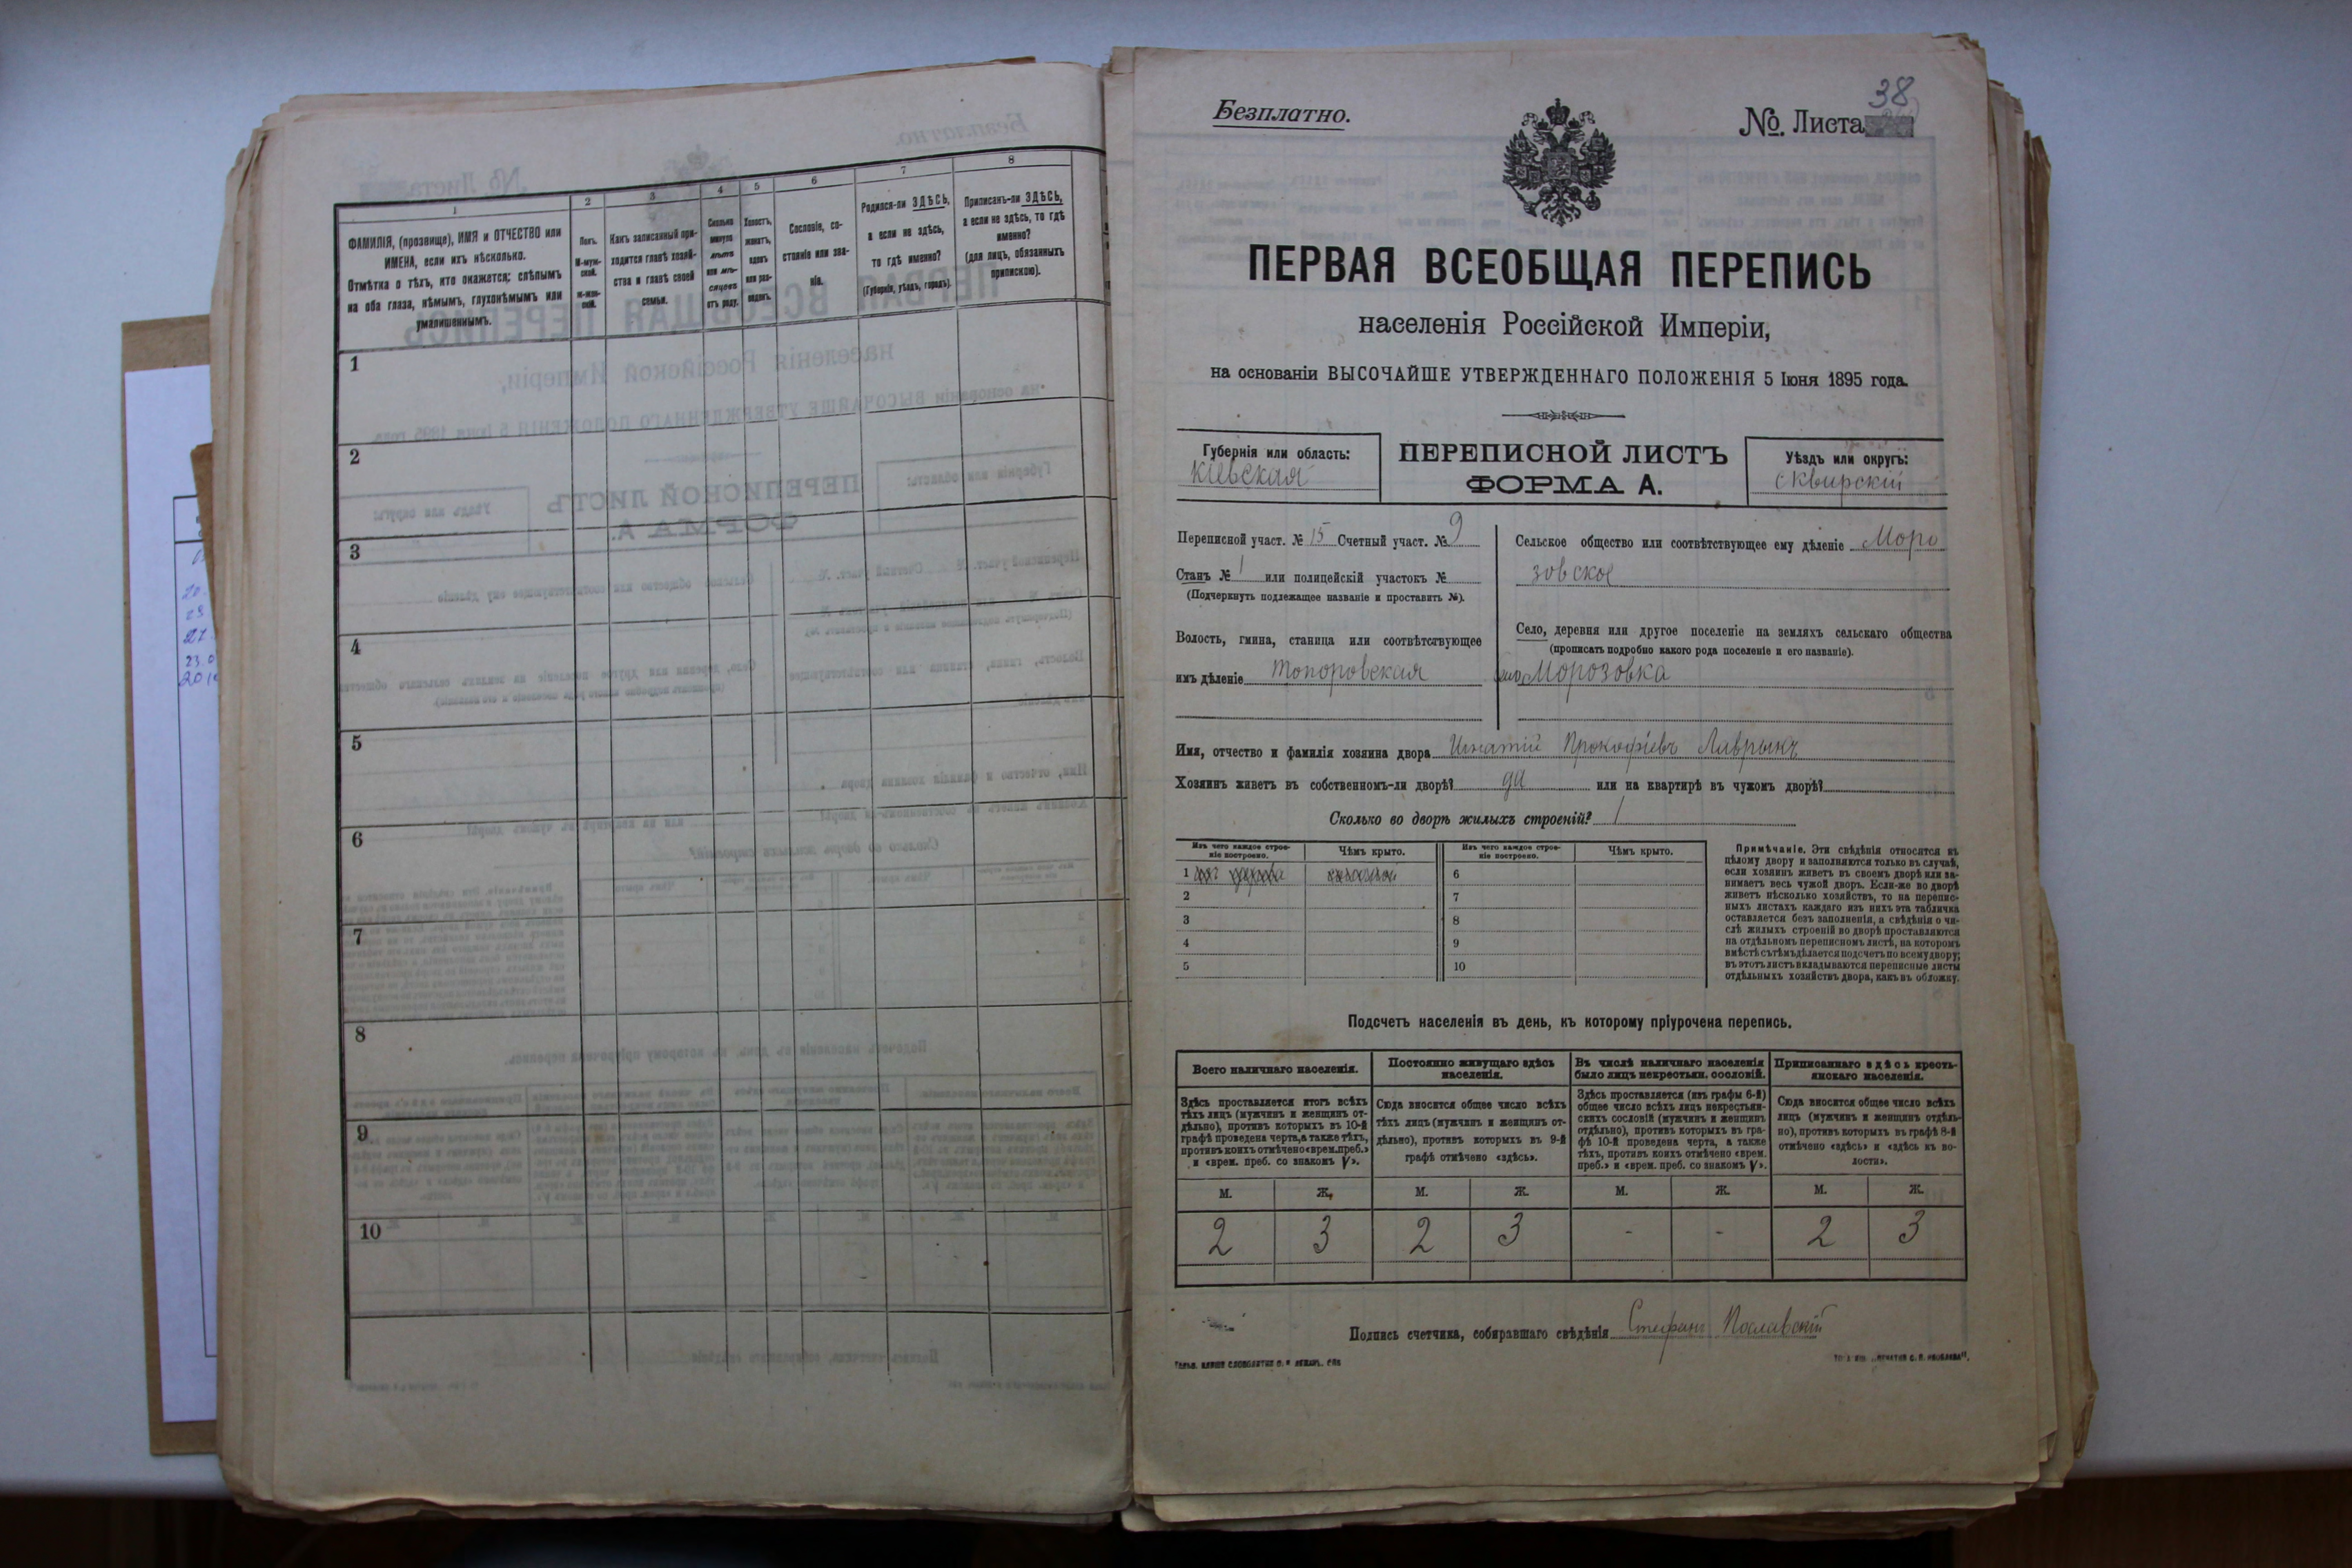 1
2
3
4
5
6
7
8
ФАМИЛІЯ, (прозвище), ИМЯ и ОТЧЕСТВО или
ИМЕНА, если ихъ нѣсколько.
Отмѣтка о тѣхъ, кто окажется: слѣпымъ
на оба глаза, нѣмымъ, глухонѣмымъ или
умалишеннымъ.
Полъ.
М-муж-
ской.
Ж-жен-
скій.
Какъ записанный при-
ходится главѣ хозяй-
ства и главѣ своей
семьи.
Сколько
минуло
лѣтъ
или мѣ-
сяцевъ
отъ роду.
Холостъ,
женатъ,
вдовъ
или раз-
веденъ.
Сословіе, со-
стояніе или зва-
ніе.
Родился-ли ЗДѢСЬ,
а если не здѣсь,
то гдѣ именно?
(Губернія, уѣздъ, городъ).
Приписанъ-ли ЗДѢСЬ,
а если не здѣсь, то гдѣ
именно?
(для лицъ, обязанныхъ
припискою).
1
2
3
4
5
6
7
8
9
10
Безплатно.
38
№ Листа
ПЕРВАЯ ВСЕОБЩАЯ ПЕРЕПИСЬ
населенія Россійской Имперіи,
на основаніи ВЫСОЧАЙШЕ УТВЕРЖДЕННАГО ПОЛОЖЕНІЯ 5 Іюня 1895 года.
Губернія или область:
Кіевская
ПЕРЕПИСНОЙ ЛИСТЪ
ФОРМА А.
Уѣздъ или округъ:
Сквирскій
Переписной участ. № 15 Счетный участ. № 9
Станъ № 1 или полицейскій участокъ №
(Подчеркнуть подлежащее названіе и проставить №).
Волость, гмина, станица или соотвѣтствующее
имъ дѣленіе Топоровская
Сельское общество или соотвѣтствующее ему дѣленіе Моро
зовское
Село, деревня или другое поселеніе на земляхъ сельскаго общества
(прописать подробно какого рода поселеніе и его названіе).
село Морозовка
Имя, отчество и фамилія хозяина двора Игнатій Прокофіевъ Лаврыкъ
Хозяинъ живетъ въ собственномъ-ли дворѣ? да или на квартирѣ въ чужомъ дворѣ?
Сколько во дворѣ жилыхъ строеній? 1
Изъ чего каждое строе-
ніе построено.
Чѣмъ крыто.
Изъ чего каждое строе-
ніе построено.
Чѣмъ крыто.
1
2
3
4
5
6
7
8
9
10
Примѣчаніе. Эти свѣдѣнія относятся къ
цѣлому двору и заполняются только въ случаѣ,
если хозяинъ живетъ въ своемъ дворѣ или за-
нимаетъ весь чужой дворъ. Если-же во дворѣ
живетъ нѣсколько хозяйствъ, то на перепис-
ныхъ листахъ каждаго изъ нихъ эта табличка
оставляется безъ заполненія, а свѣдѣнія о чи-
слѣ жилыхъ строеній во дворѣ проставляются
на отдѣльномъ переписномъ листѣ, на которомъ
вмѣстѣ съ тѣмъ дѣлается подсчетъ по всему двору;
въ этотъ листъ вкладываются переписные листы
отдѣльныхъ хозяйствъ двора, какъ въ обложку.
Подсчетъ населенія въ день, къ которому пріурочена перепись.
Всего наличнаго населенія.
Постоянно живущаго здѣсь
населенія.
Въ числѣ наличнаго населенія
было лицъ некрестьян. сословій.
Приписаннаго здѣсь кресть-
янскаго населенія.
Здѣсь проставляется итогъ всѣхъ
тѣхъ лицъ (мужчинъ и женщинъ от-
дѣльно), противъ которыхъ въ 10-й
графѣ проведена черта, а также тѣхъ,
противъ коихъ отмѣчено «врем. преб.»
и «врем. преб. со знакомъ V».
Сюда вносится общее число всѣхъ
тѣхъ лицъ (мужчинъ и женщинъ от-
дѣльно), противъ которыхъ въ 9-й
графѣ отмѣчено «здѣсь».
Здѣсь проставляется (изъ графы 6-й)
общее число всѣхъ лицъ некрестьян-
скихъ сословій (мужчинъ и женщинъ
отдѣльно), противъ которыхъ въ гра-
фѣ 10-й проведена черта, а также
тѣхъ, противъ коихъ отмѣчено «врем.
преб.» и «врем. преб. со знакомъ V».
Сюда вносится общее число всѣхъ
лицъ (мужчинъ и женщинъ отдѣль-
но), противъ которыхъ въ графѣ 8-й
отмѣчено «здѣсь» и «здѣсь къ во-
лости».
М. Ж. М. Ж. М. Ж. М. Ж.
2 3 2 3 - - 2 3
Подпись счетчика, собиравшаго свѣдѣнія Стефанъ Пославскій